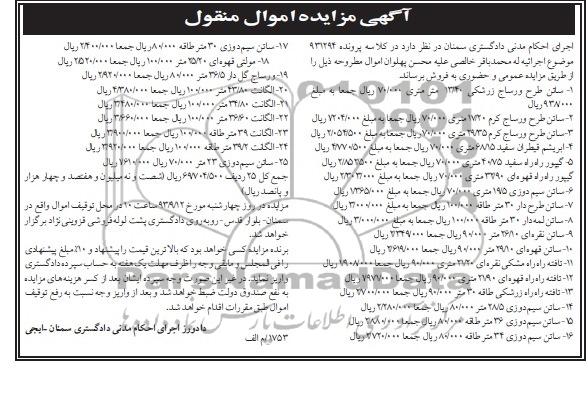 آگهی مزایده اموال منقول
اجرای احکام مدنی دادگستری سمنان در نظر دارد در کلاسه پرونده ۹۳۱۲۹۴
موضوع اجرائیه له محمدباقر خالصی علیه محسن پهلوان اموال مطروحه ذیل را
از طریق مزایده عمومی و حضوری به فروش برساند.
۱- ساتن طرح ورساج زرشکی ۱۳/۴۰ متر متری ۷۰/۰۰۰ ریال جمعا به مبلغ
۹۳۸۰۰۰ ریال
۲-ساتن طرح ورساج کرم ۱۷/۲۰ متری ۷۰/۰۰۰ ریال جمعا به مبلغ ۱/۲۰۴/۰۰۰ ریال
۳-ساتن طرح ورساج کرم ۲۹/۳۵ متری ۷۰/۰۰۰ ریال جمعا به مبلغ ۲/۰۵۴/۵۰۰ ریال
۴- ابریشم قیطران سفید ۶۸/۱۵ متری ۷۰/۰۰۰ ریال جمعا به مبلغ ۴/۷۷۰/۵۰۰ ریال
۵- گیپور راه راه سفید ۴۰/۷۵ متری ۷۰/۰۰۰ ریال جمعا به مبلغ ۲/۸۵۲/۵۰۰ ریال
گیپور راه راه قهوه ای ۳۲/۹۰ متری ۷۰/۰۰۰ ریال جمعا به مبلغ ۲/۳۰۳/۰۰۰ ریال
۶- ساتن سیم دوزی ۱۹/۵ متری ۷۰/۰۰۰ ریال جمعا به مبلغ ۱/۳۶۵/۰۰۰ ریال
۷-ساتن طرح دار ۳۰ متر طاقه ۱۰۰/۰۰۰ ریال جمعا به مبلغ ۳/۰۰۰/۰۰۰ ریال
۸- ساتن لمه دار ۳۰ متر طاقه ۱۰۰/۰۰۰ ریال جمعا به مبلغ ۳/۰۰۰/۰۰۰ ریال
۹- ساتن نقره ای ۲۶/۱۰ متر ۹۰/۰۰۰ ریال جمعا ۲/۳۴۹/۰۰۰ ریال
۱۰- ساتن قهوه ای ۲۹/۱۰ متر ۹۰/۰۰۰ ریال جمعا ۲/۶۱۹/۰۰۰ ریال
۱۱- تافته راه راه مشکی نقره ای ۲۱/۲۰ متری ۹۰/۰۰۰ ریال جمعا ۱/۹۰۸/۰۰۰ ریال
۱۲- تافته راه راه قهوه ای ۲۱/۹۰ متری ۹۰/۰۰۰ ریال جمعا ۱/۹۷۱/۰۰۰ ریال
۱۳- تافته راه راه زرشکی طاقه ۳۰ متر ۹۰/۰۰۰ ریال جمعا ۲/۷۰۰/۰۰۰ ریال
۱۴- ساتن سیم دوزی ۲۸/۵ متر ۸۰/۰۰۰ ریال جمعا ۲/۲۸۰/۰۰۰ ریال
۱۵- ساتن سیم دوزی ۳۶ متر طاقه ۸۰/۰۰۰ ریال جمعا ۲/۸۸۰/۰۰۰ ریال
۱۶- ساتن سیم دوزی ۳۴ متر طاقه ۸۰/۰۰۰ ریال جمعا ۲/۷۲۰/۰۰۰ ریال
۱۷- ساتن سیم دوزی ۳۰ متر طاقه ۸۰/۰۰۰ ریال جمعا ۲/۴۰۰/۰۰۰ ریال
۱۸- مولتی قهوه ای ۲۵/۲۰ متر ۱۰۰/۰۰۰ ریال جمعا ۲/۵۲۰/۰۰۰ ریال
۱۹- ورساج گل دار ۳۶/۵ متر ۸۰/۰۰۰ ریال جمعا ۲/۹۲۰/۰۰۰ ریال
۲۰- الگانت ۴۳/۸۰ متر ۱۰۰/۰۰۰ ریال جمعا ۴/۳۸۰/۰۰۰ ریال
۲۱- الگانت ۳۴/۸۰ متر ۱۰۰/۰۰۰ ریال جمعا ۳/۴۸۰/۰۰۰ ریال
۲۲- الگانت ۳۶/۶۰ متر ۱۰۰/۰۰۰ ریال جمعا ۳/۶۶۰/۰۰۰ ریال
۲۳- الگانت ۳۹ متر طاقه ۱۰۰/۰۰۰ ریال جمعا ۳/۹۰۰/۰۰۰ ریال
۲۴- الگانت ۳۹/۲ متر طاقه ۱۰۰/۰۰۰ ریال جمعا ۳/۹۲۰/۰۰۰ ریال
۲۵- ساتن سیم دوزی ۲۳ متر ۷۰/۰۰۰ ریال جمعا ۱/۶۱۰/۰۰۰ ریال
جمع کل ۲۵ ردیف ۶۹/۷۰۴/۵۰۰ ریال (شصت و نه میلیون و هفتصد و چهار هزار
و پانصد ریال)
مزایده در روز چهارشنبه مورخ ۹۳/۹/۱۲ ساعت ۱۰ در محل توقیف اموال واقع در
سمنان- بلوار قدس- روبه روی دادگستری پشت لوله فروشی قزوینی نژاد برگزار
خواهد شد.
برنده مزایده کسی خواهد بود که بالاترین قیمت را پیشنهاد و ۱۰٪ مبلغ پیشنهادی
را فی المجلس و مابقی وجه را ظرف مهلت یک هفته به حساب سپرده دادگستری
واریز نماید. در غیر این صورت وجه سپرده ایشان بعد از کسر هزینه های مزایده
به نفع صندوق دولت ضبط خواهد شد و بعد از واریز وجه نسبت به رفع توقیف
اموال طبق مقررات اقدام خواهد شد.
دادورز اجرای احکام مدنی دادگستری سمنان - ایجی
۱۷۵۳/م الف